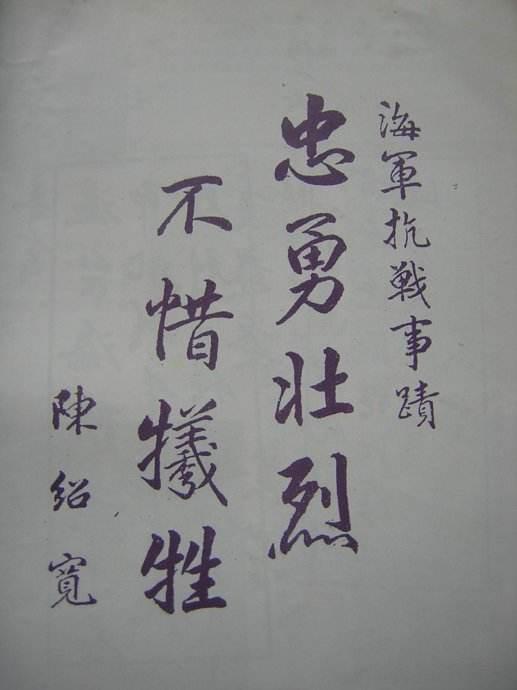 海軍抗戦事蹟
忠勇壯烈
不惜犧牲
陳紹寬